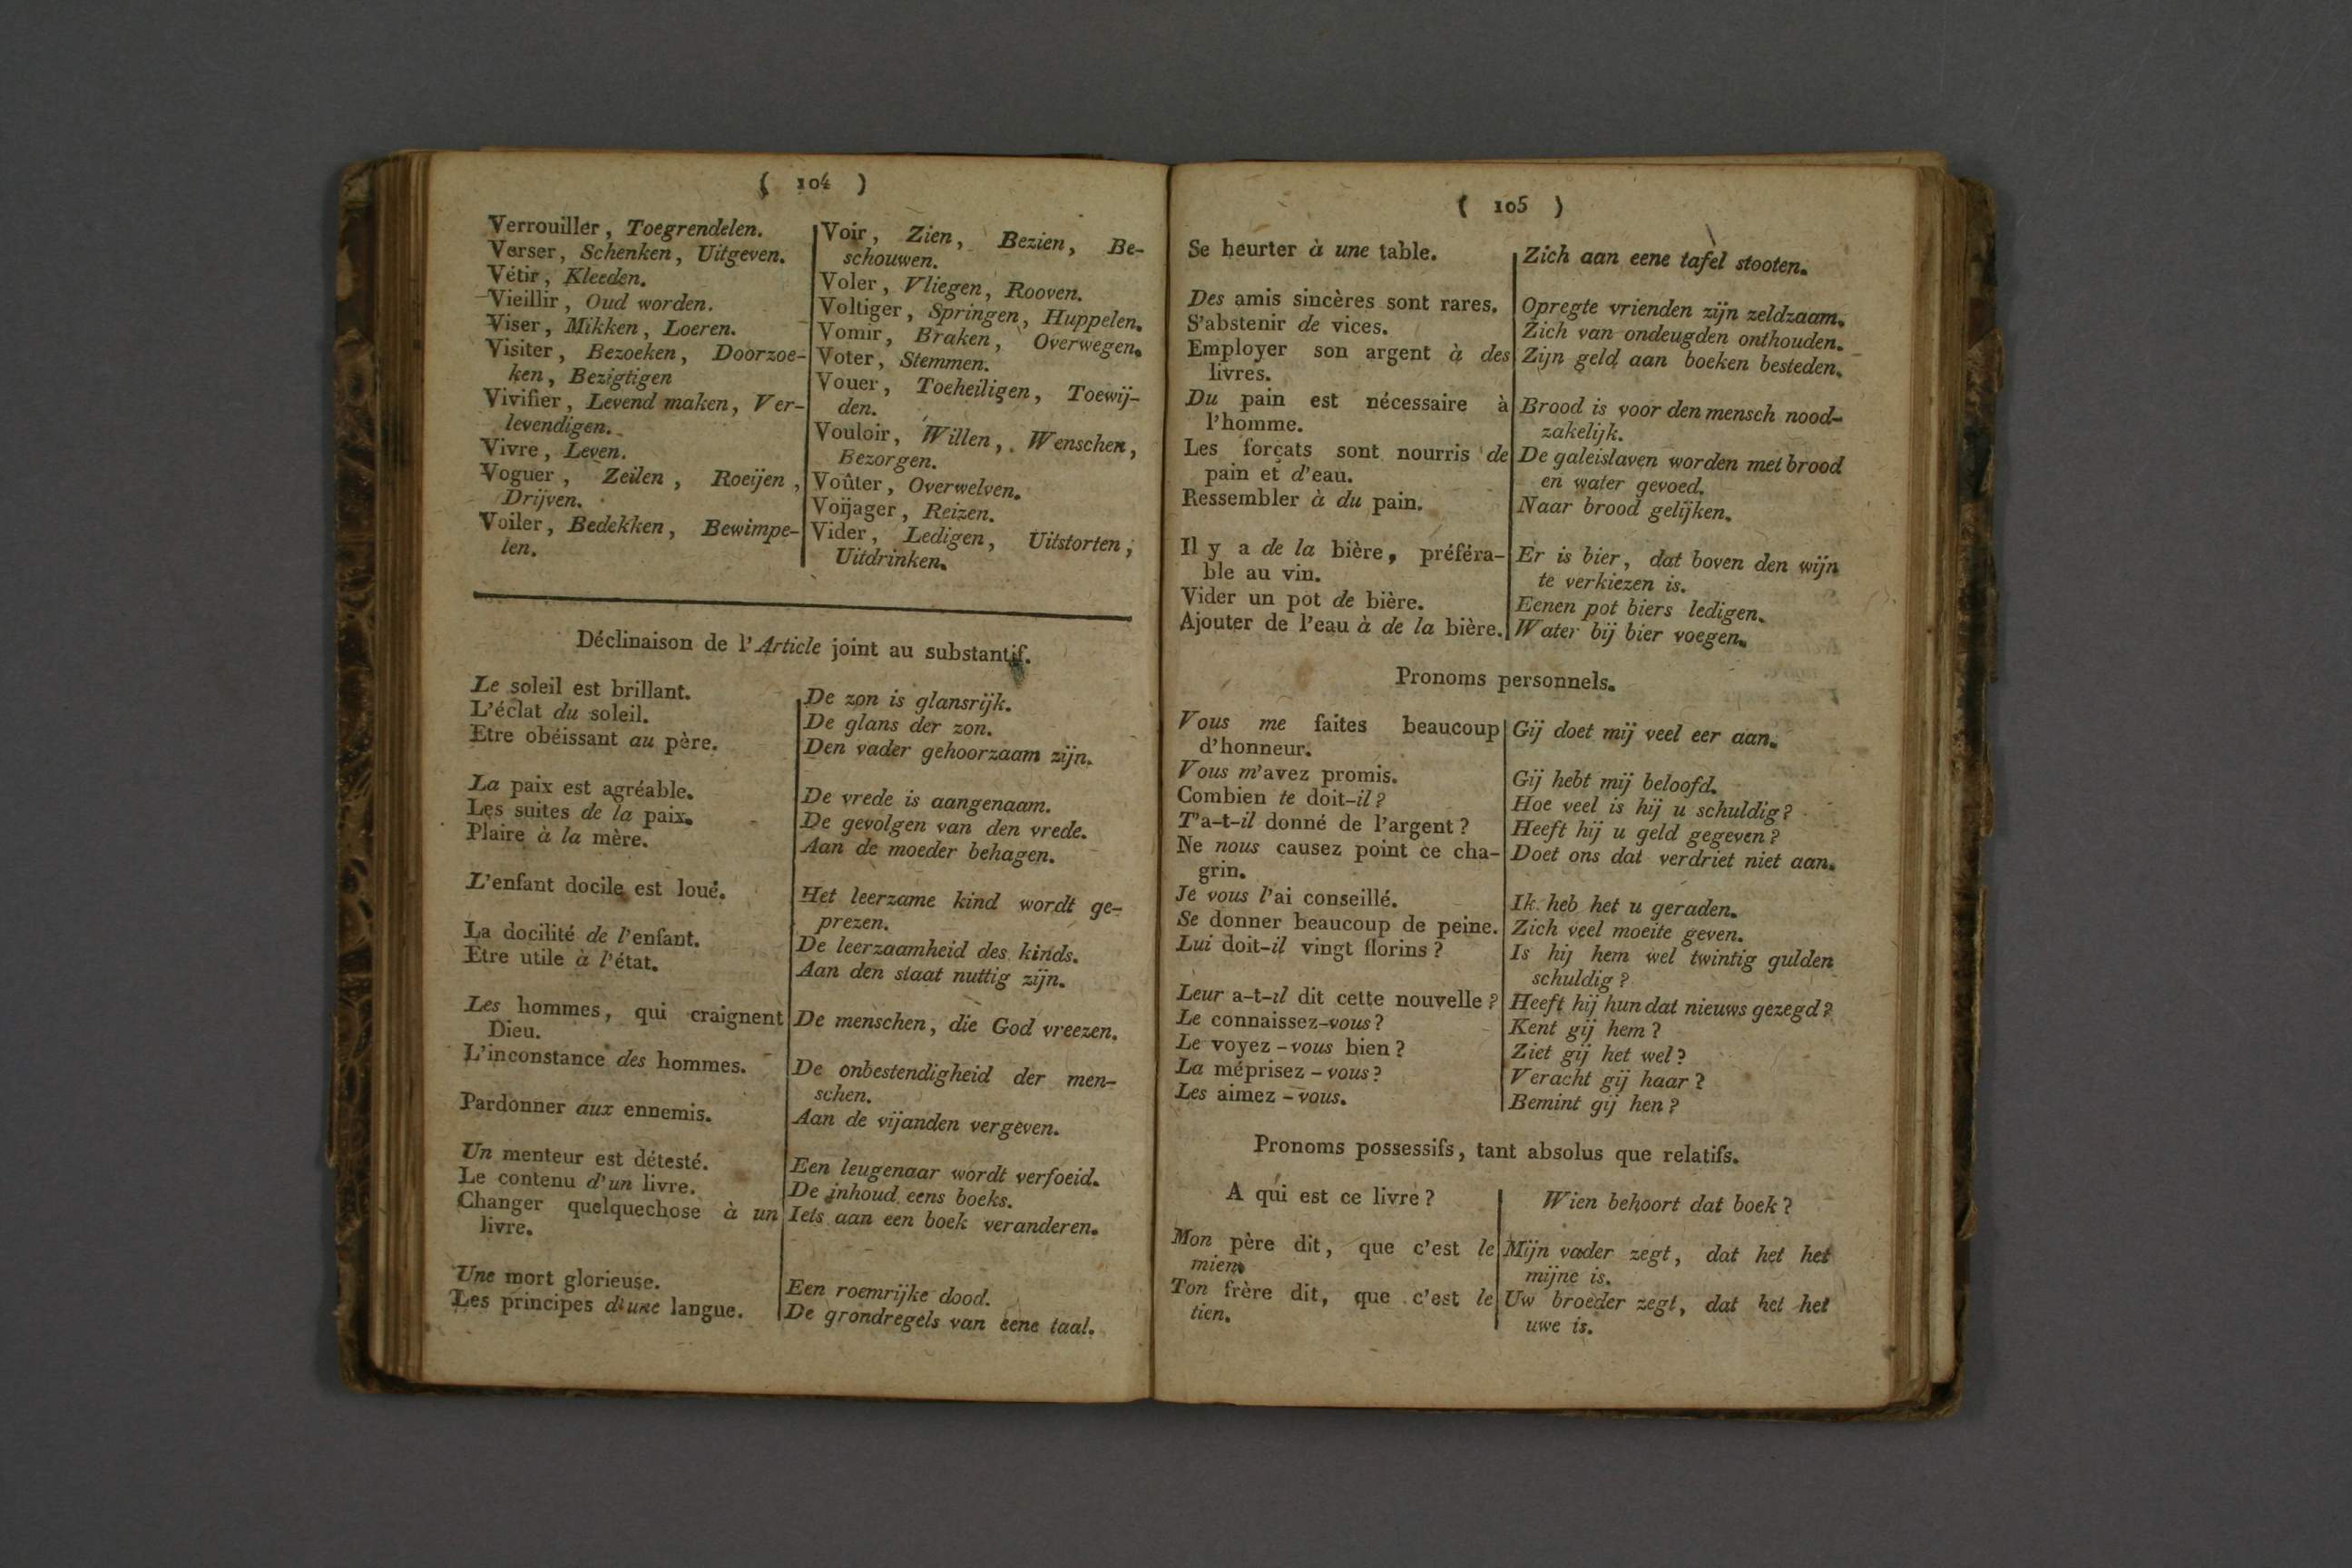 ( 104 )
Verrouiller, Toegrendelen.
Verser, Schenken, Uitgeven.
Vétir, Kleeden.
Vieillir, Oud worden.
Viser, Mikken, Loeren.
Visiter, Bezoeken, Doorzoe-
ken, Bezigtigen
Vivifier, Levend maken, Ver-
levendigen.
Vivre, Leven.
Voguer, Zeilen, Roeijen,
Drijven.
Voiler, Bedekken, Bewimpe-
len.
Voir, Zien, Bezien, Be-
schouwen.
Voler, Vliegen, Rooven.
Voltiger, Springen, Huppelen.
Vomir, Braken, Overwegen.
Voter, Stemmen.
Vouer, Toeheiligen, Toewij-
den.
Vouloir, Willen, Wenschen,
Bezorgen.
Voûter, Overwelven.
Voijager, Reizen.
Vider, Ledigen, Uitstorten,
Uitdrinken.
Déclinaison de l'Article joint au substantif.
Le soleil est brillant.
L'éclat du soleil.
Etre obéissant au père.
La paix est agréable.
Les suites de la paix.
Plaire à la mère.
L'enfant docile est loué.
La docilité de l'enfant.
Etre utile à l'état.
Les hommes, qui craignent
Dieu.
L'inconstance des hommes.
Pardonner aux ennemis.
Un menteur est détesté.
Le contenu d'un livre.
Changer quelquechose à un
livre.
Une mort glorieuse.
Les principes d'une langue.
De zon is glansrijk.
De glans der zon.
Den vader gehoorzaam zijn.
De vrede is aangenaam.
De gevolgen van den vrede.
Aan de moeder behagen.
Het leerzame kind wordt ge-
prezen.
De leerzaamheid des kinds.
Aan den staat nuttig zijn.
De menschen, die God vreezen.
De onbestendigheid der men-
schen.
Aan de vijanden vergeven.
Een leugenaar wordt verfoeid.
De inhoud eens boeks.
Iets aan een boek veranderen.
Een roemrijke dood.
De grondregels van eene taal.
( 105 )
Se heurter à une table.
Des amis sincères sont rares.
S'abstenir de vices.
Employer son argent à des
livres.
Du pain est nécessaire à
l'homme.
Les forçats sont nourris de
pain et d'eau.
Ressembler à du pain.
Il y a de la bière, préféra-
ble au vin.
Vider un pot de bière.
Ajouter de l'eau à de la bière.
Zich aan eene tafel stooten.
Opregte vrienden zijn zeldzaam.
Zich van ondeugden onthouden.
Zijn geld aan boeken besteden.
Brood is voor den mensch nood-
zakelijk.
De galeislaven worden met brood
en water gevoed.
Naar brood gelijken.
Er is bier, dat boven den wijn
te verkiezen is.
Eenen pot biers ledigen.
Water bij bier voegen.
Pronoms personnels.
Vous me faites beaucoup
d'honneur.
Vous m'avez promis.
Combien te doit-il?
T'a-t-il donné de l'argent?
Ne nous causez point ce cha-
grin.
Je vous l'ai conseillé.
Se donner beaucoup de peine.
Lui doit-il vingt florins?
Leur a-t-il dit cette nouvelle?
Le connaissez-vous?
Le voyez-vous bien?
La méprisez-vous?
Les aimez-vous.
Gij doet mij veel eer aan.
Gij hebt mij beloofd.
Hoe veel is hij u schuldig?
Heeft hij u geld gegeven?
Doet ons dat verdriet niet aan.
Ik heb het u geraden.
Zich veel moeite geven.
Is hij hem wel twintig gulden
schuldig?
Heeft hij hun dat nieuws gezegd?
Kent gij hem?
Ziet gij het wel?
Veracht gij haar?
Bemint gij hen?
Pronoms possessifs, tant absolus que relatifs.
A qui est ce livre?
Mon père dit, que c'est le
mien.
Ton frère dit, que c'est le
tien.
Wien behoort dat boek?
Mijn vader zegt, dat het het
mijne is.
Uw broeder zegt, dat het het
uwe is.